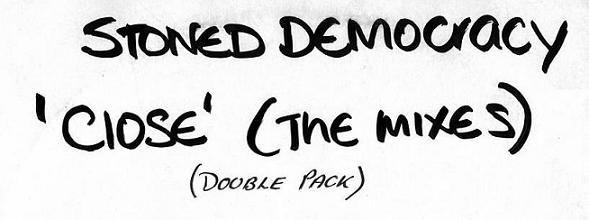 STONED DEMOCRACY
'CLOSE' (THE MIXES)
(DOUBLE PACK)